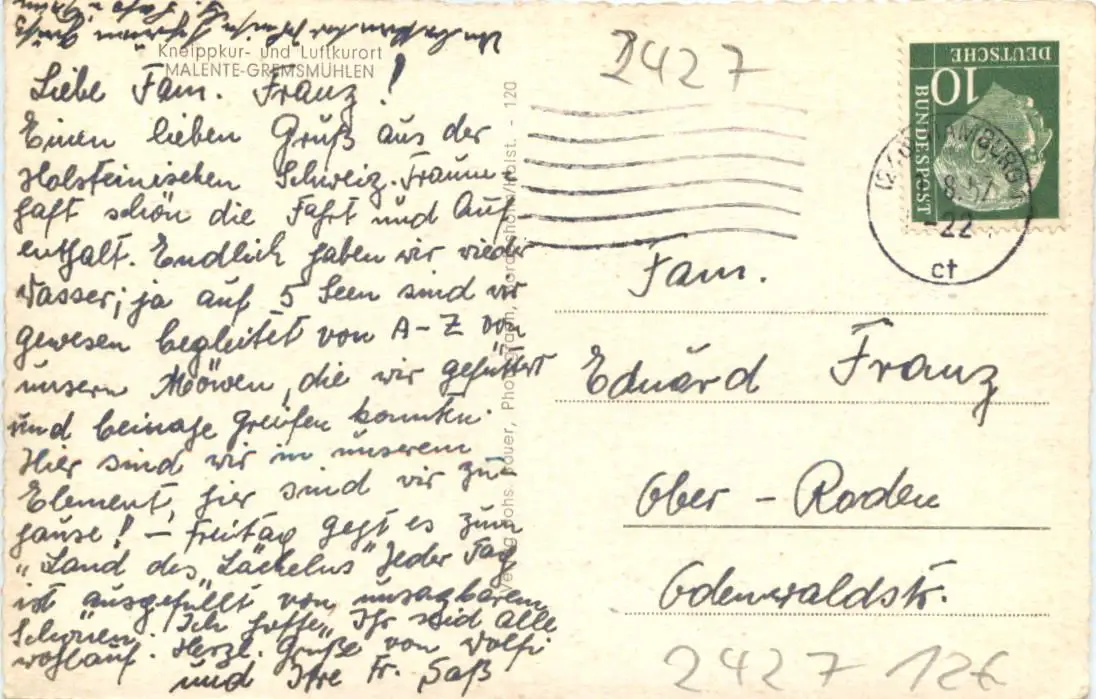 Kneippkur- und Luftkurort
MALENTE-GREMSMÜHLEN
Liebe Fam. Franz!
Einen lieben Gruß aus der
Holsteinischen Schweiz. Traum-
haft schön die Fahrt und Auf-
enthalt. Endlich haben wir wieder
Wasser; ja auf 5 Seen sind wir
gewesen begleitet von A-Z von
unsern Möwen, die wir gefüttert
und beinahe greifen konnten.
Hier sind wir in unserem
Element, hier sind wir zu-
hause! - Freitag geht es zum
"Land des Lächelns" Jeder Tag
ist ausgefüllt von unsagbarem
Schönen. Ich hoffe, Ihr seid alle
wohlauf. Herzl. Grüße von Wolfi
und Ihre Fr. Saß
Photograph, Holst. - 120
2427
DEUTSCHE
BUNDESPOST
10
HAMBURG
8.57
-22
ct
Fam.
Eduard Franz
Ober-Roden
Odenwaldstr.
2427